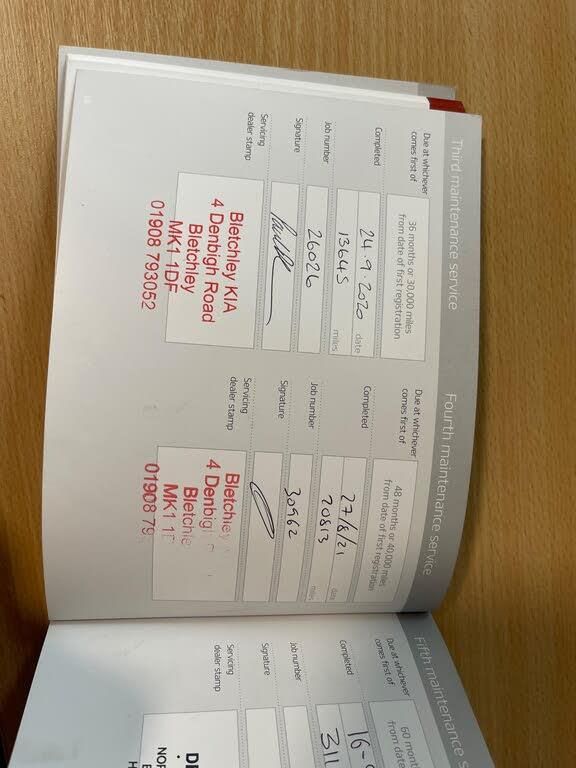 Third maintenance service
Due at whichever
comes first of
36 months or 30,000 miles
from date of first registration
Completed
24.9.2020 date
13645 miles
Job number
26026
Signature
Servicing
dealer stamp
Bletchley KIA
4 Denbigh Road
Bletchley
MK1 1DF
01908 793052
Fourth maintenance service
Due at whichever
comes first of
48 months or 40,000 miles
from date of first registration
Completed
27/8/21 date
20813 miles
Job number
30962
Signature
Servicing
dealer stamp
Bletchley
4 Denbig
Bletchle
MK1 1
01908 79
Fifth maintenance s
Due at whichever
comes first of
60 mont
from date
Completed
16-
311
Job number
Signature
Servicing
dealer stamp
NOR